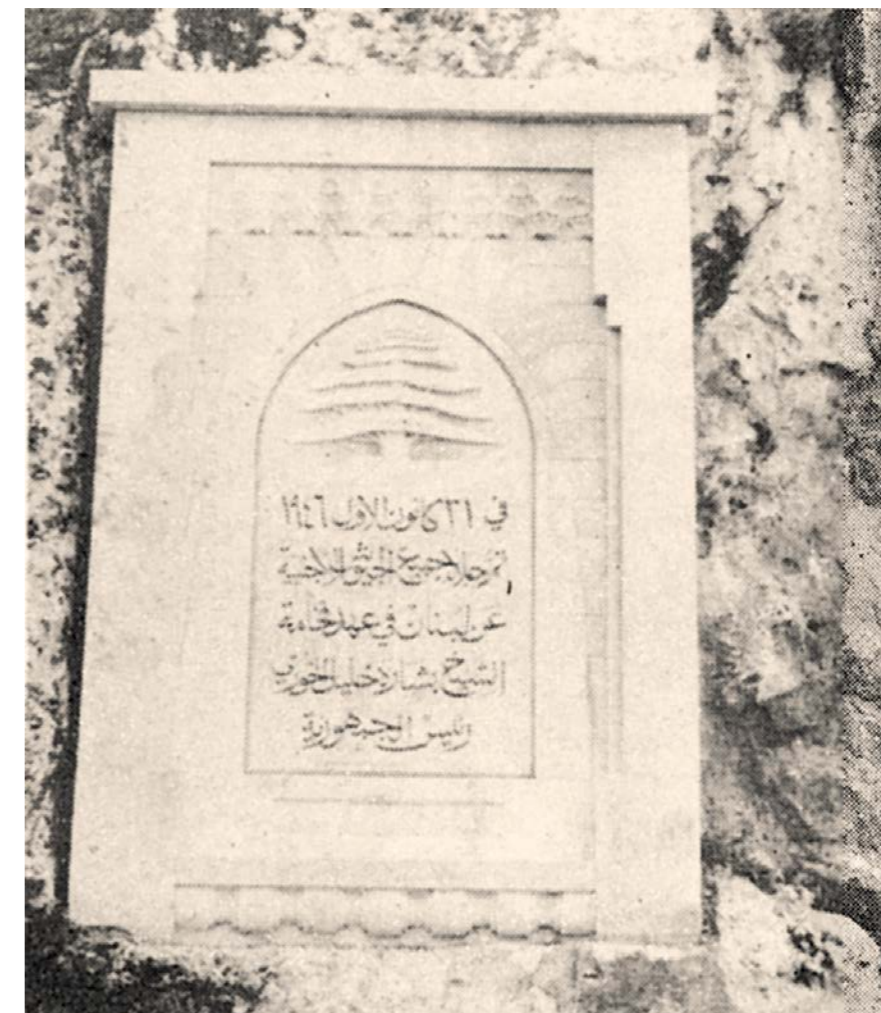 في ٣١ كانون الاول ١٩٤٦
تم جلاء جميع الجيوش الاجنبية
عن لبنان في عهد فخامة
الشيخ بشاره خليل الخوري
رئيس الجمهورية